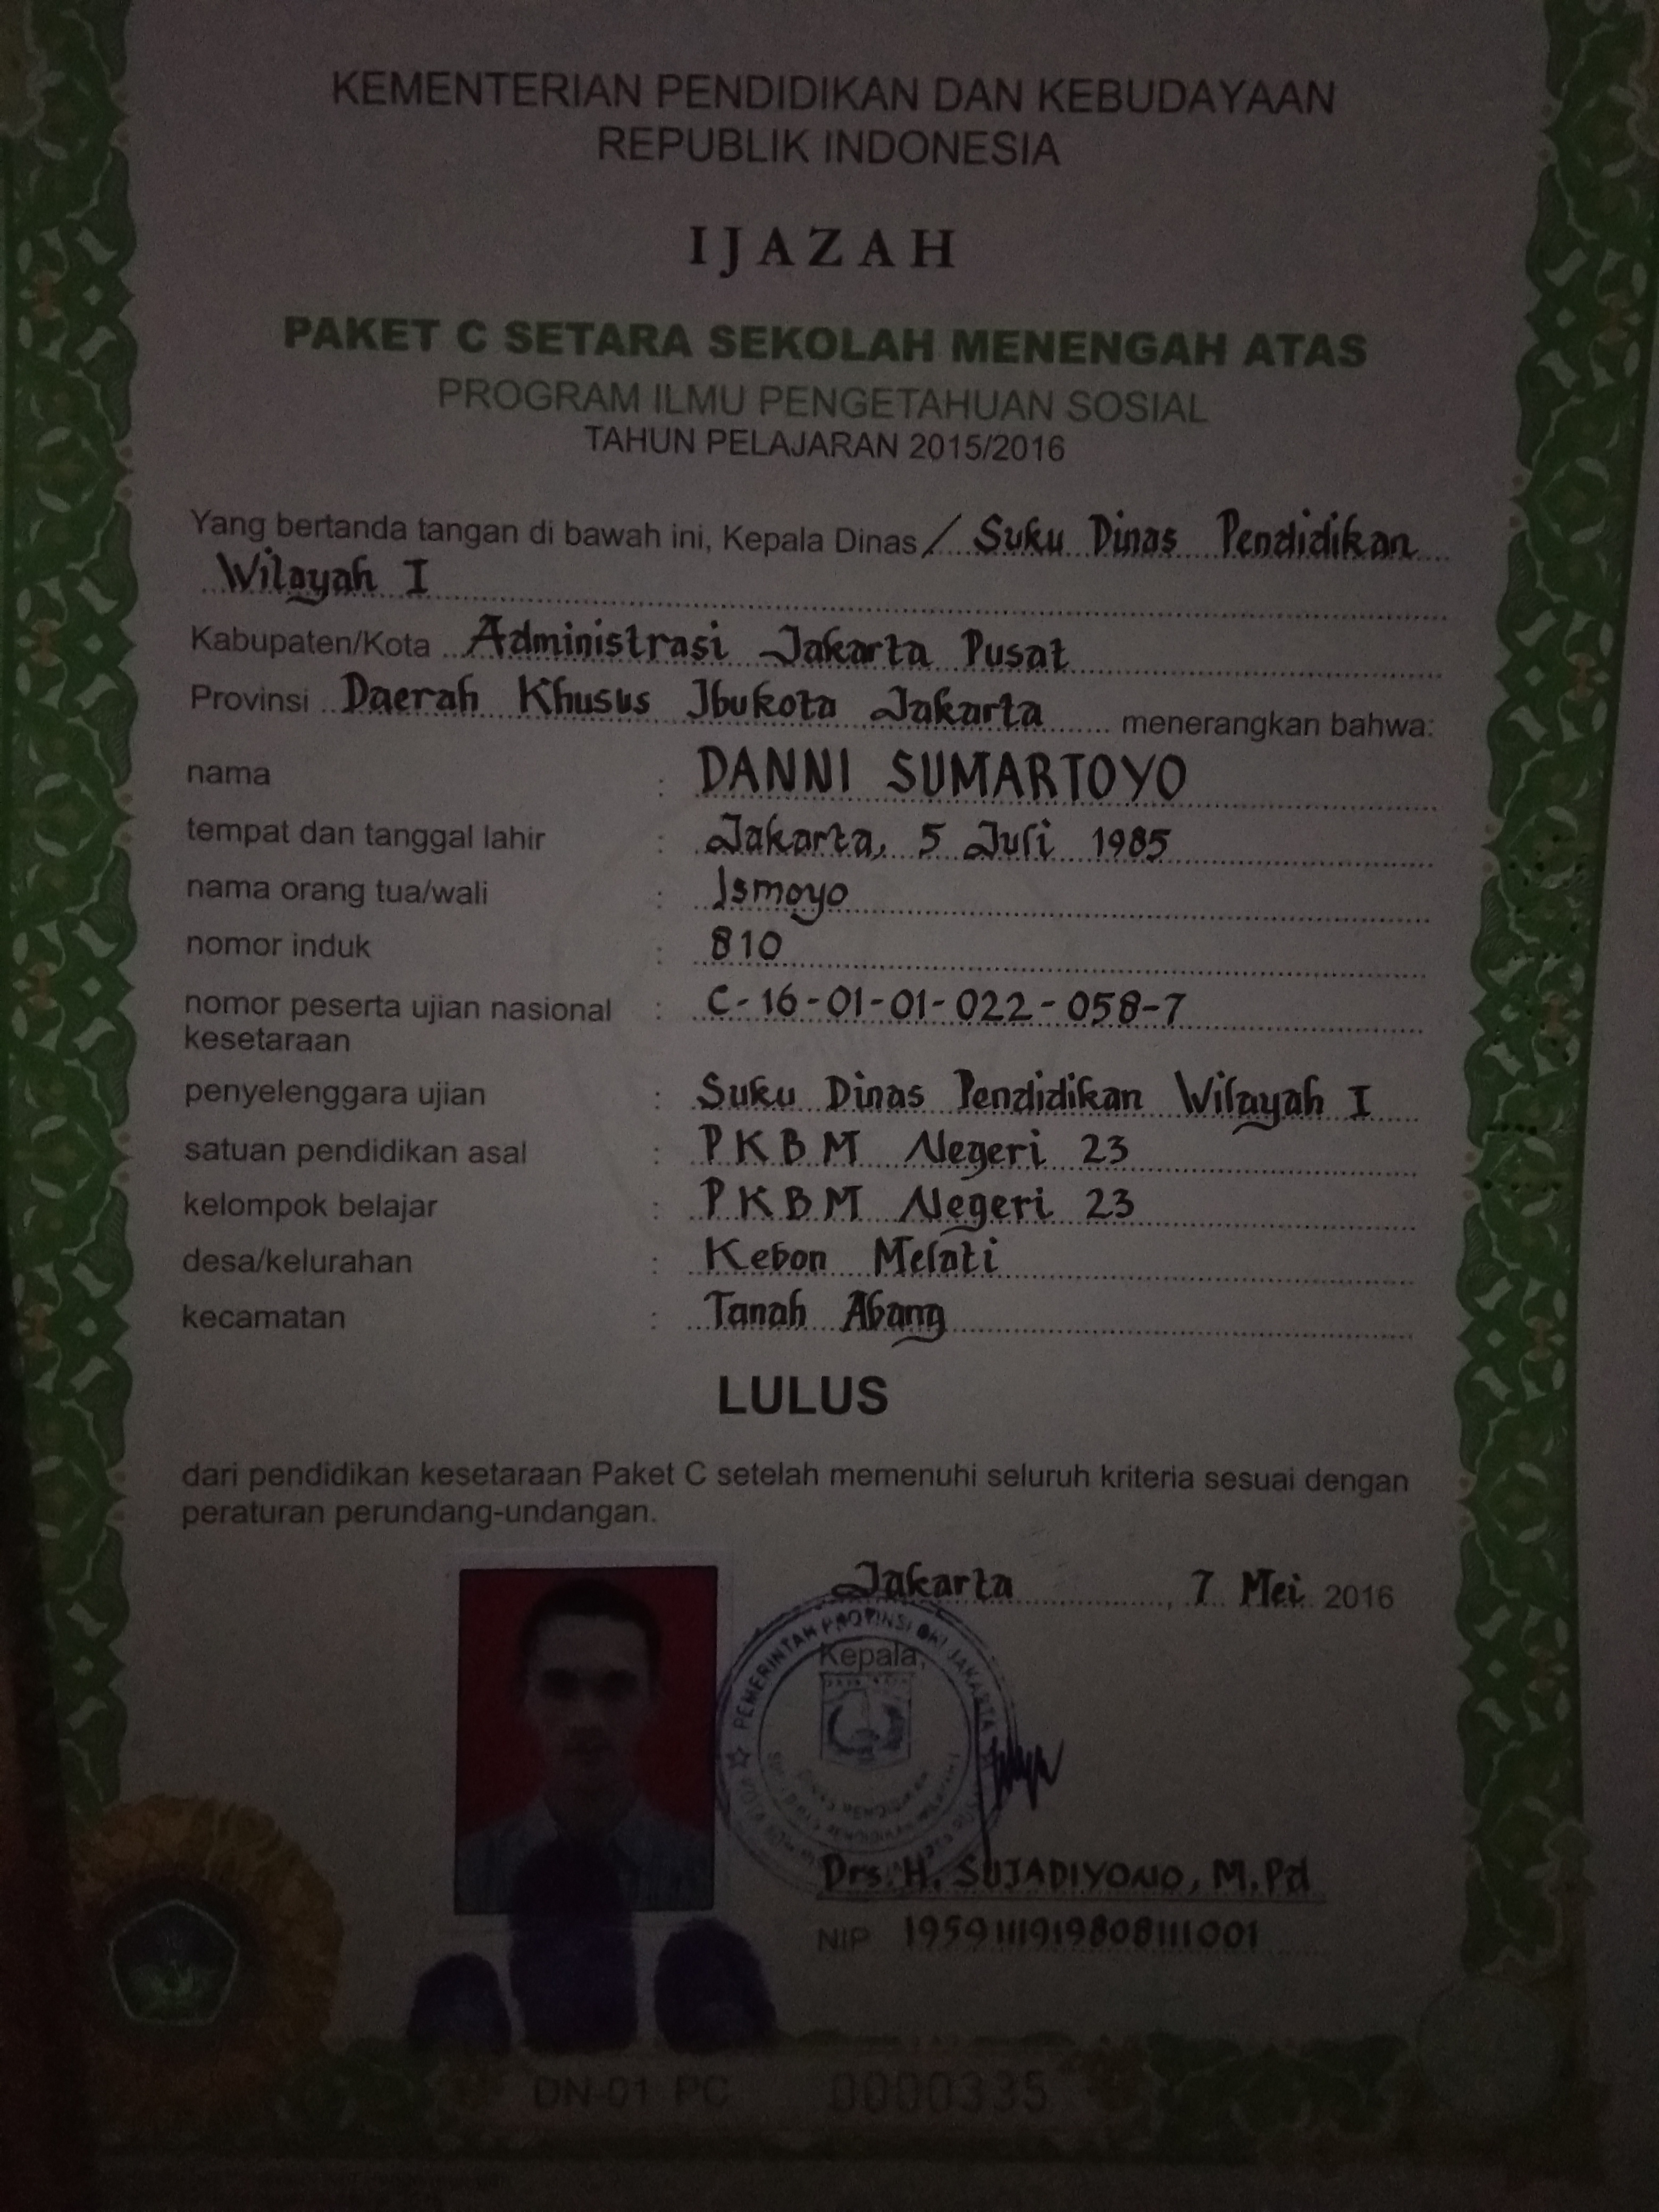 KEMENTERIAN PENDIDIKAN DAN KEBUDAYAAN
REPUBLIK INDONESIA
IJAZAH
PAKET C SETARA SEKOLAH MENENGAH ATAS
PROGRAM ILMU PENGETAHUAN SOSIAL
TAHUN PELAJARAN 2015/2016
Yang bertanda tangan di bawah ini, Kepala Dinas / Suku Dinas Pendidikan
Wilayah I
Kabupaten/Kota Administrasi Jakarta Pusat
Provinsi Daerah Khusus Ibukota Jakarta menerangkan bahwa:
nama : DANNI SUMARTOYO
tempat dan tanggal lahir : Jakarta, 5 Juli 1985
nama orang tua/wali : Ismoyo
nomor induk : 810
nomor peserta ujian nasional : C-16-01-01-022-058-7
kesetaraan
penyelenggara ujian : Suku Dinas Pendidikan Wilayah I
satuan pendidikan asal : PKBM Negeri 23
kelompok belajar : PKBM Negeri 23
desa/kelurahan : Kebon Melati
kecamatan : Tanah Abang
LULUS
dari pendidikan kesetaraan Paket C setelah memenuhi seluruh kriteria sesuai dengan
peraturan perundang-undangan.
Jakarta, 7 Mei 2016
PEMERINTAH PROVINSI DKI JAKARTA
Kepala,
DINAS PENDIDIKAN
Drs. H. SUJADIYONO, M.Pd
NIP 195911191980811001
DN-01 PC 0000335